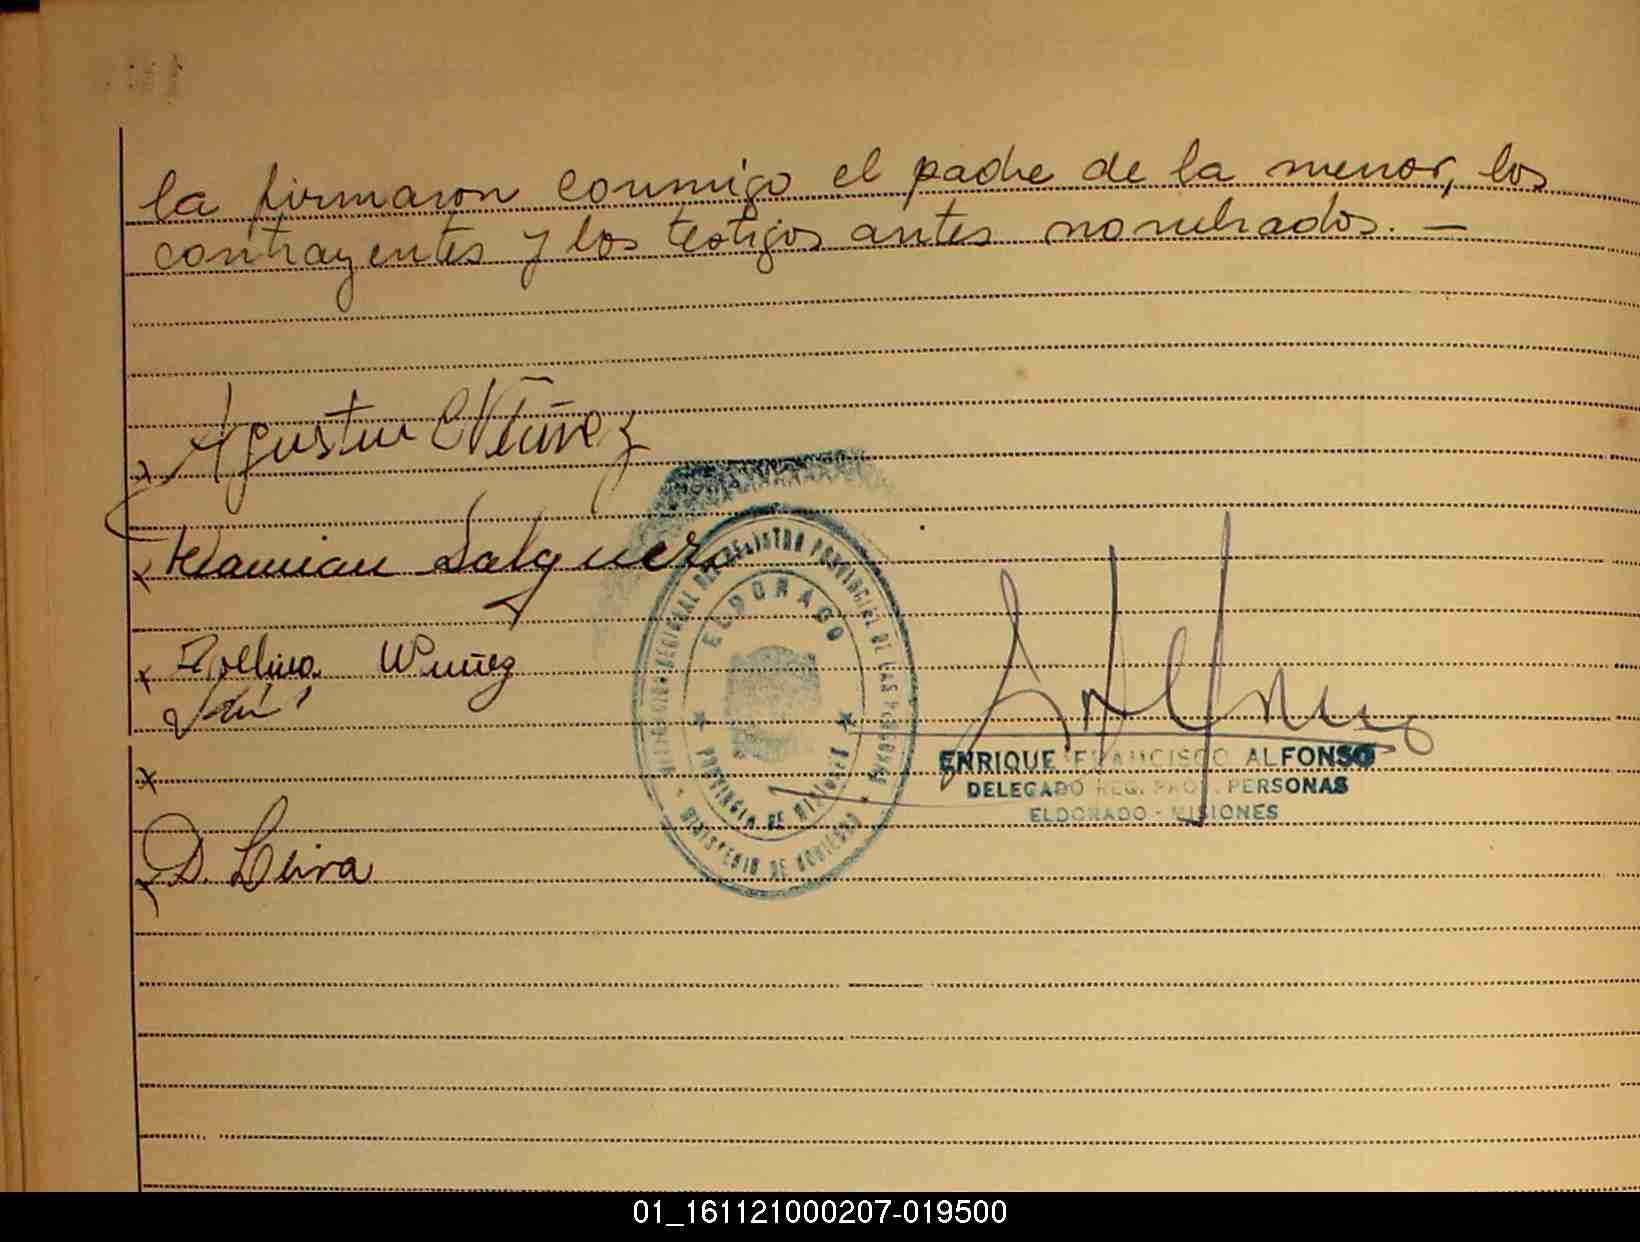 la firmaron conmigo el padre de la menor, los
contrayentes y los testigos antes nombrados. —
Agustin Nuñez
Damian Salguero
Nuñez
D. Leiva
DELEGACION REGIONAL DEL REGISTRO PROVINCIAL DE LAS PERSONAS
ELDORADO
PROVINCIA DE MISIONES
MINISTERIO DE GOBIERNO
ENRIQUE FRANCISCO ALFONSO
DELEGADO REG. PROV. PERSONAS
ELDORADO - MISIONES
01_161121000207-019500